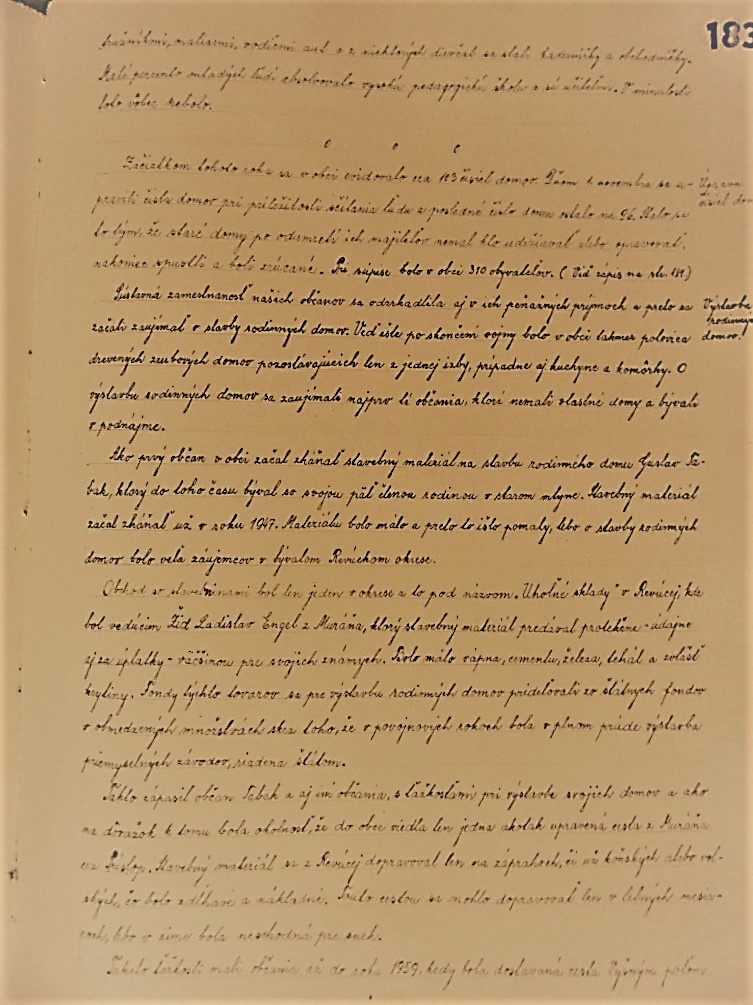 183
maliarmi, vodičmi aut a z niektorých dievčat sa stali kaderníčky a obchodníčky.
Malé percento mladých ľudí absolvovalo vysokú pedagogickú školu a sú učiteľmi. V minulosti
toto vôbec nebolo.
Začiatkom tohoto roka sa v obci evidovalo cca 103 čísiel domov. Dňom 1. novembra sa u-
pravili čísla domov pri príležitosti sčítania ľudu a posledné číslo domu ostalo na 96. Stalo sa
to tým, že staré domy po odumretí ich majiteľov nemal kto udržiavať alebo opravovať,
nakoniec spustli a boli zrúcané. Pri súpise bolo v obci 310 obyvateľov. (Viď zápis na str. 181.)
Úprava
čísiel dom
Sústavná zamestnanosť našich občanov sa odzrkadlila aj v ich peňažných príjmoch a preto sa
začali zaujímať o stavby rodinných domov. Veď ešte po skončení vojny bolo v obci takmer polovica
drevených zrubových domov pozostávajúcich len z jednej izby, prípadne aj kuchyne a komôrky. O
výstavbu rodinných domov sa zaujímali najprv tí občania, ktorí nemali vlastné domy a bývali
v podnájme.
Výstavba
rodinných
domov.
Ako prvý občan v obci začal zháňať stavebný materiál na stavbu rodinného domu Gustav Ta-
bak, ktorý do toho času býval so svojou päť člennou rodinou v starom mlyne. Stavebný materiál
začal zháňať už v roku 1947. Materiálu bolo málo a preto to išlo pomaly, lebo o stavby rodinných
domov bolo veľa záujemcov v bývalom Revúckom okrese.
Obchod so stavebninami bol len jeden v okrese a to pod názvom „Uhoľné sklady" v Revúcej, kde
bol vedúcim Žid Ladislav Engel z Muráňa, ktorý stavebný materiál predával protekčne - údajne
aj za úplatky - väčšinou pre svojich známych. Bolo málo vápna, cementu, železa, tehál a zvlášť
krytiny. Fondy týchto tovarov sa pre výstavbu rodinných domov prideľovali zo štátnych fondov
v obmedzených množstvách skrz toho, že v povojnových rokoch bola v plnom prúde výstavba
priemyselných závodov, riadená štátom.
Takto zápasil občan Tabak a aj iní občania, s ťažkosťami pri výstavbe svojich domov a ako
na dôražok k tomu bola okolnosť, že do obce viedla len jedna akotak upravená cesta z Muráňa
cez Príslop. Stavebný materiál sa z Revúcej dopravoval len na záprahoch, či už konských alebo vol-
ských, čo bolo zdĺhavé a nákladné. Touto cestou sa mohlo dopravovať len v letných mesia-
coch, lebo v zime bola neschodná pre sneh.
Takéto ťažkosti mali občania až do roku 1959, kedy bola dostavaná cesta Vyšným poľom